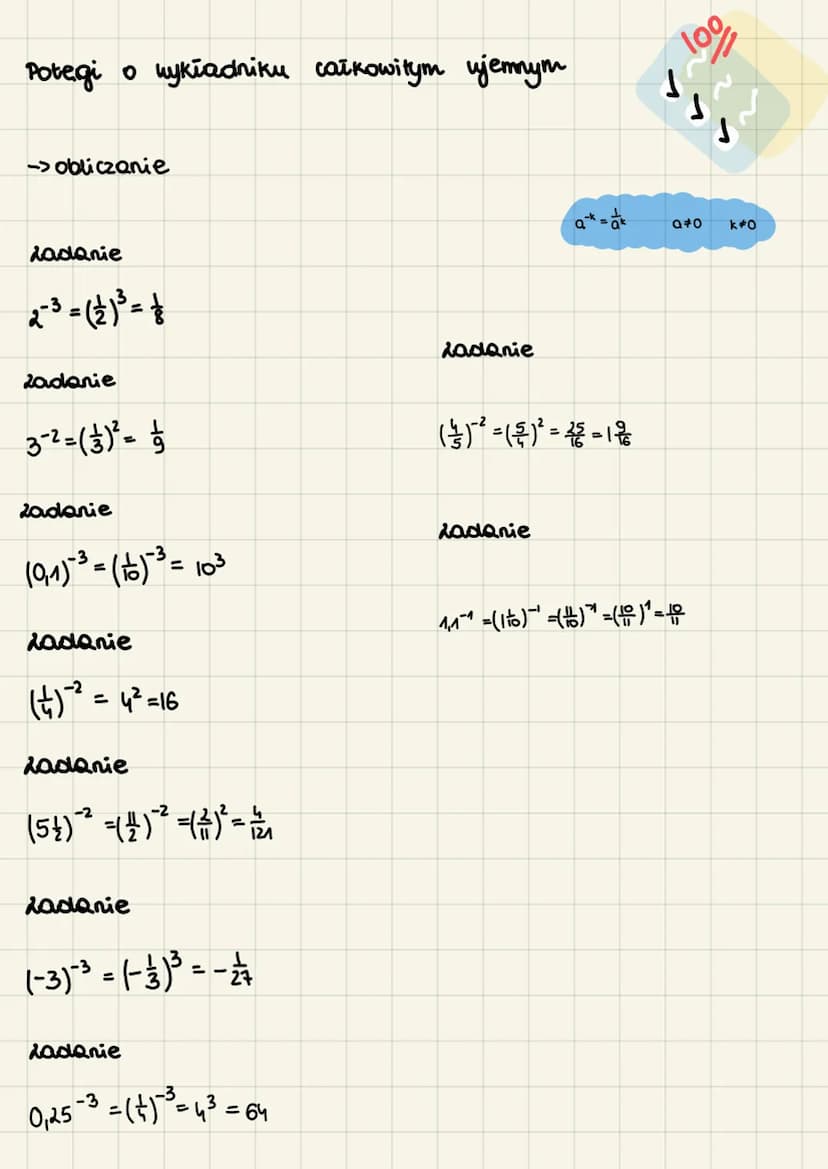 Potęgi o wykładniku całkowitym ujemnym
100%
-> obliczanie
a^-k = 1/a^k a≠0 k≠0
zadanie
2^-3 = (1/2)^3 = 1/8
zadanie
3^-2 = (1/3)^2 = 1/9
zadanie
(0,1)^-3 = (1/10)^-3 = 10^3
zadanie
(1/4)^-2 = 4^2 = 16
zadanie
(5 1/2)^-2 = (11/2)^-2 = (2/11)^2 = 4/121
zadanie
(-3)^-3 = (-1/3)^3 = - 1/27
zadanie
0,25^-3 = (1/4)^-3 = 4^3 = 64
zadanie
(4/5)^-2 = (5/4)^2 = 25/16 = 1 9/16
zadanie
1,1^-1 = (1 1/10)^-1 = (11/10)^-1 = (10/11)^1 = 10/11